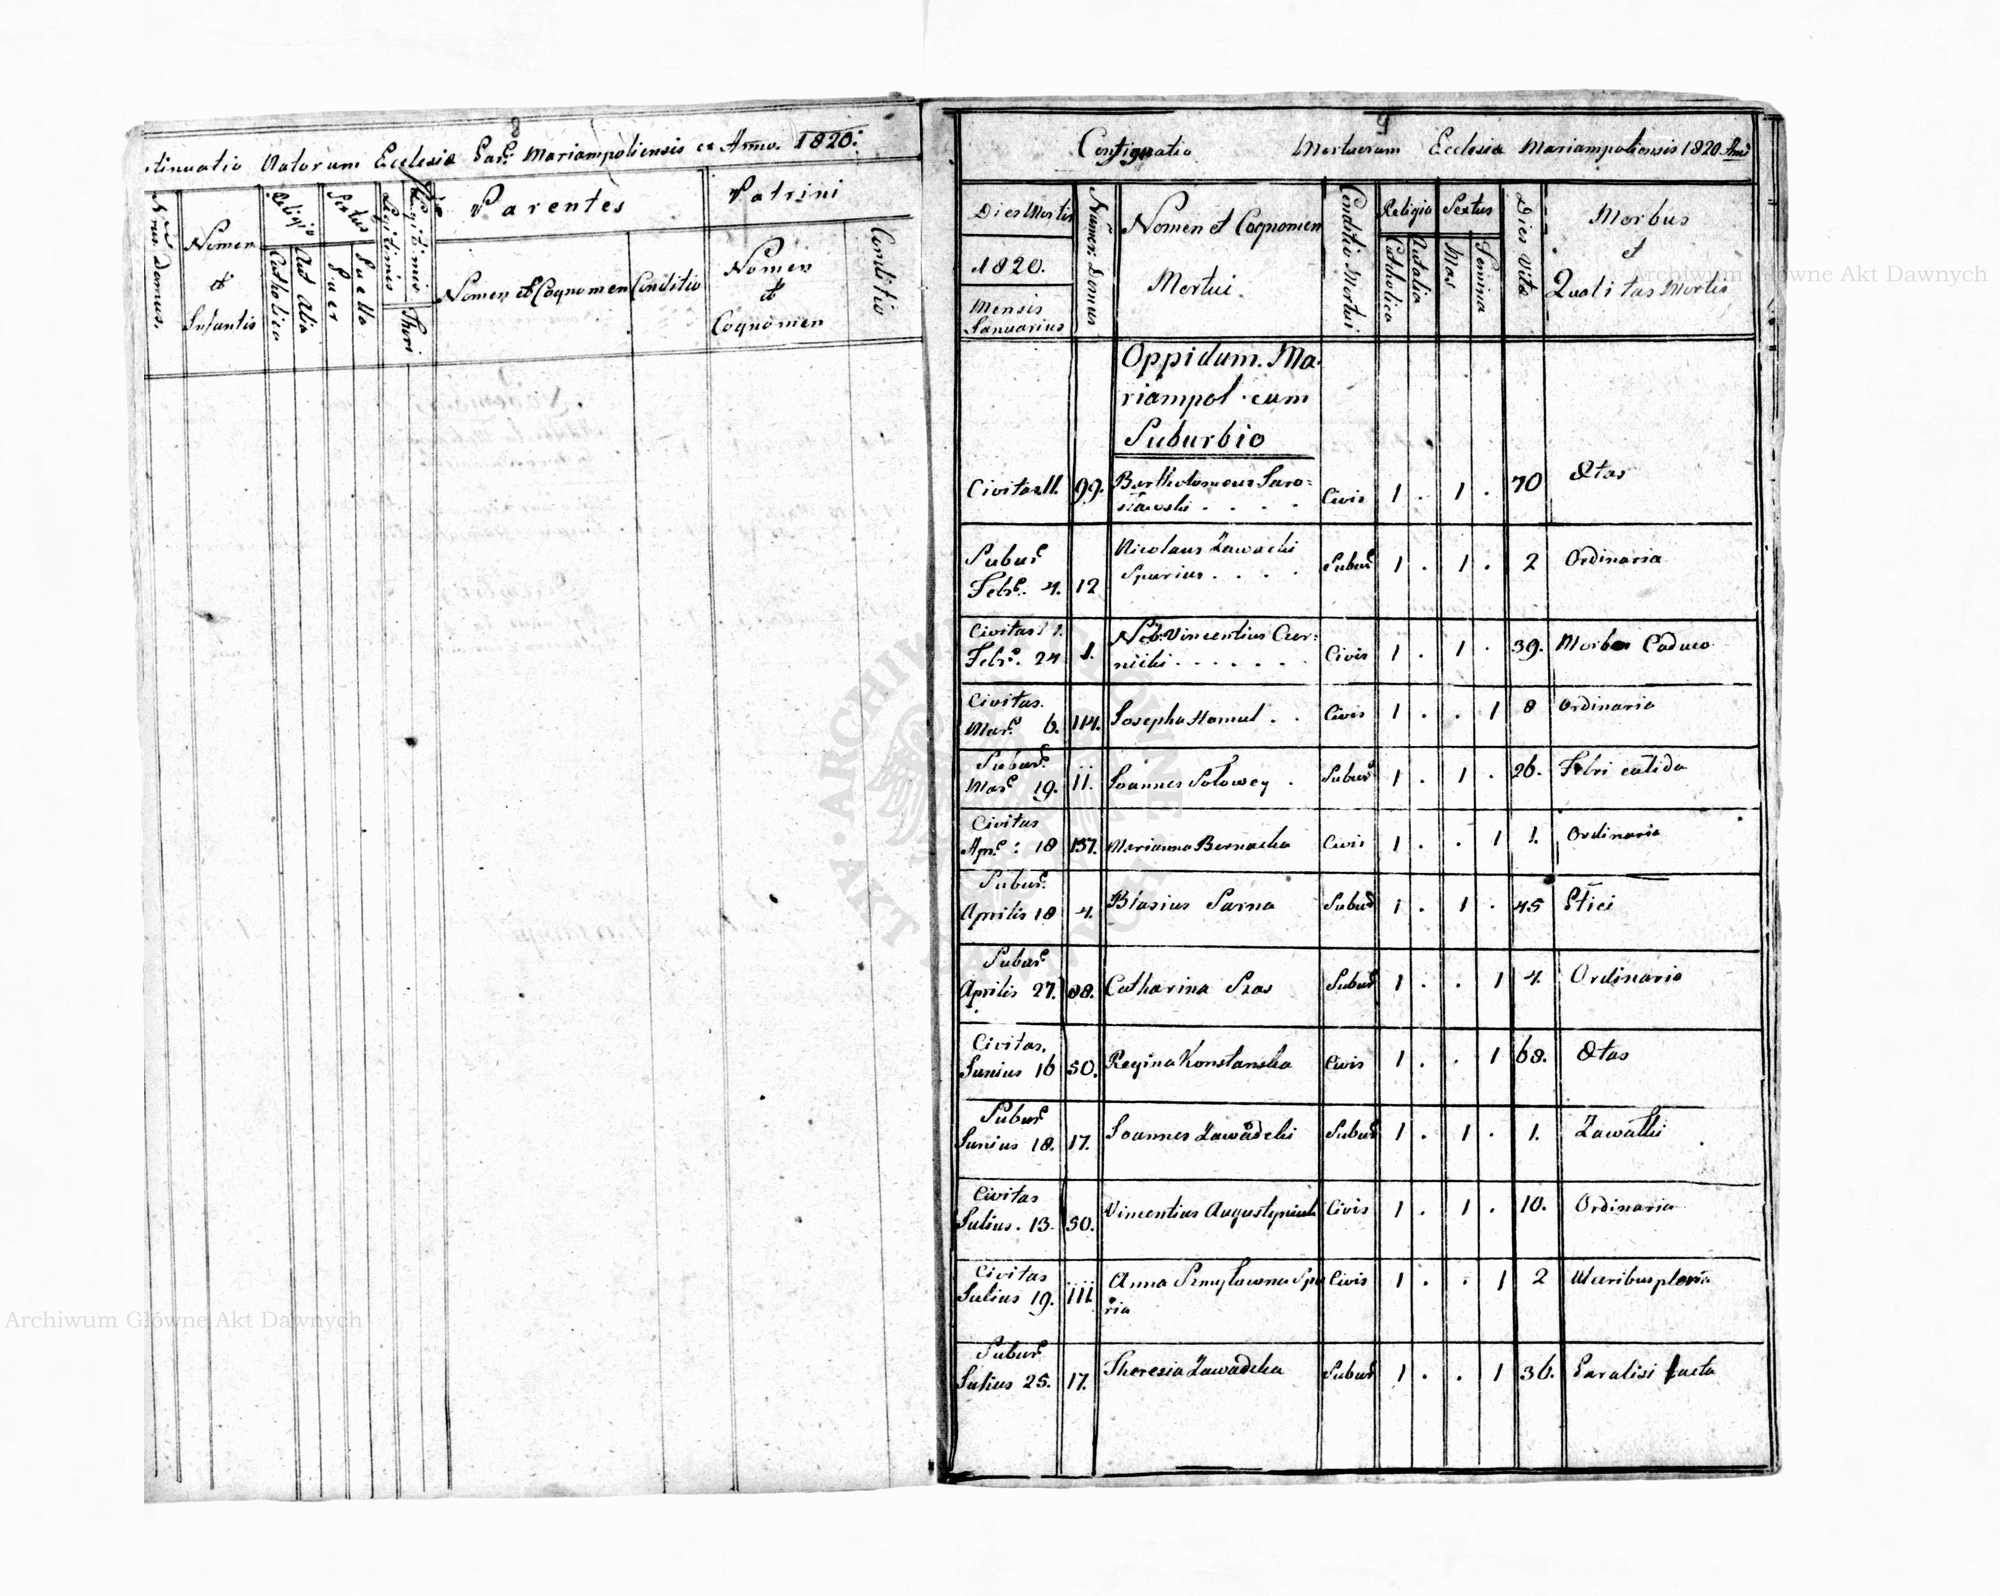 8
tinuatio Natorum Ecclesiæ Par. Mariampoliensis ex Anno. 1820:
Nrus. Domus.
Nomen
et
Infantis
Religio
Catholica
Aut Alia
Sextus
Puer
Puella
Legitimi
Thori
Parentes
Nomen et Cognomen
Conditio
Patrini
Nomen
et
Cognomen
Conditio
9
Consignatio Mortuorum Ecclesia Mariampoliensis 1820 Anni
Dies Mortis
1820.
Mensis
Januarius
Numer. Domus
Nomen et Cognomen
Mertui.
Conditio Mortui
Religio
Catholica
Aut alia
Sextus
Mas
Femina
Dies Vitæ
Morbus
et
Qualitas Mortis
Oppidum. Ma-
riampol cum
Suburbio
Civitas 11. 99. Bartholomeus Jaro=
sławski . . . . Civis 1 . 1 . 70 Ætas
Subur.
Febr. 4. 12 Nicolaus Zawacki
Spurius . . . . Subur 1 . 1 . 2 Ordinaria
Civitas
Febr. 24 1. Nob. Vincentius Czer:
nicki . . . . . . Civis 1 . 1 . 39. Morbo Caduco
Civitas.
Mar. 6. 114. Josepha Hamul . . Civis 1 . . 1 8 Ordinaria
Subur.
Mar. 19. 11. Joannes Sołowey . Subur 1 . 1 . 26. Febri calida
Civitas
Apr: 18 137. Marianna Bernacka Civis 1 . . 1 1. Ordinaria
Subur.
Aprilis 18 4. Blasius Sarna Subur 1 . 1 . 45 Etici
Subur.
Aprilis 27. 88. Catharina Szas Subur 1 . . 1 4. Ordinaria
Civitas.
Junius 16 50. Regina Konstanska Civis 1 . . 1 68. Ætas
Subur
Junius 18. 17. Joannes Zawadcki Subur 1 . 1 . 1. Zawałki
Civitas
Julius. 13. 50. Vincentius Augustyniak Civis 1 . 1 . 10. Ordinaria
Civitas
Julius 19. 111 Anna Szmyłowna Spu
ria Civis 1 . . 1 2 Ulceribus plena
Subur.
Julius 25. 17. Theresia Zawadcka Subur 1 . . 1 36. Paralisi tacta
Archiwum Główne Akt Dawnych
Archiwum Główne Akt Dawnych
ARCHIWUM GŁÓWNE AKT DAWNYCH